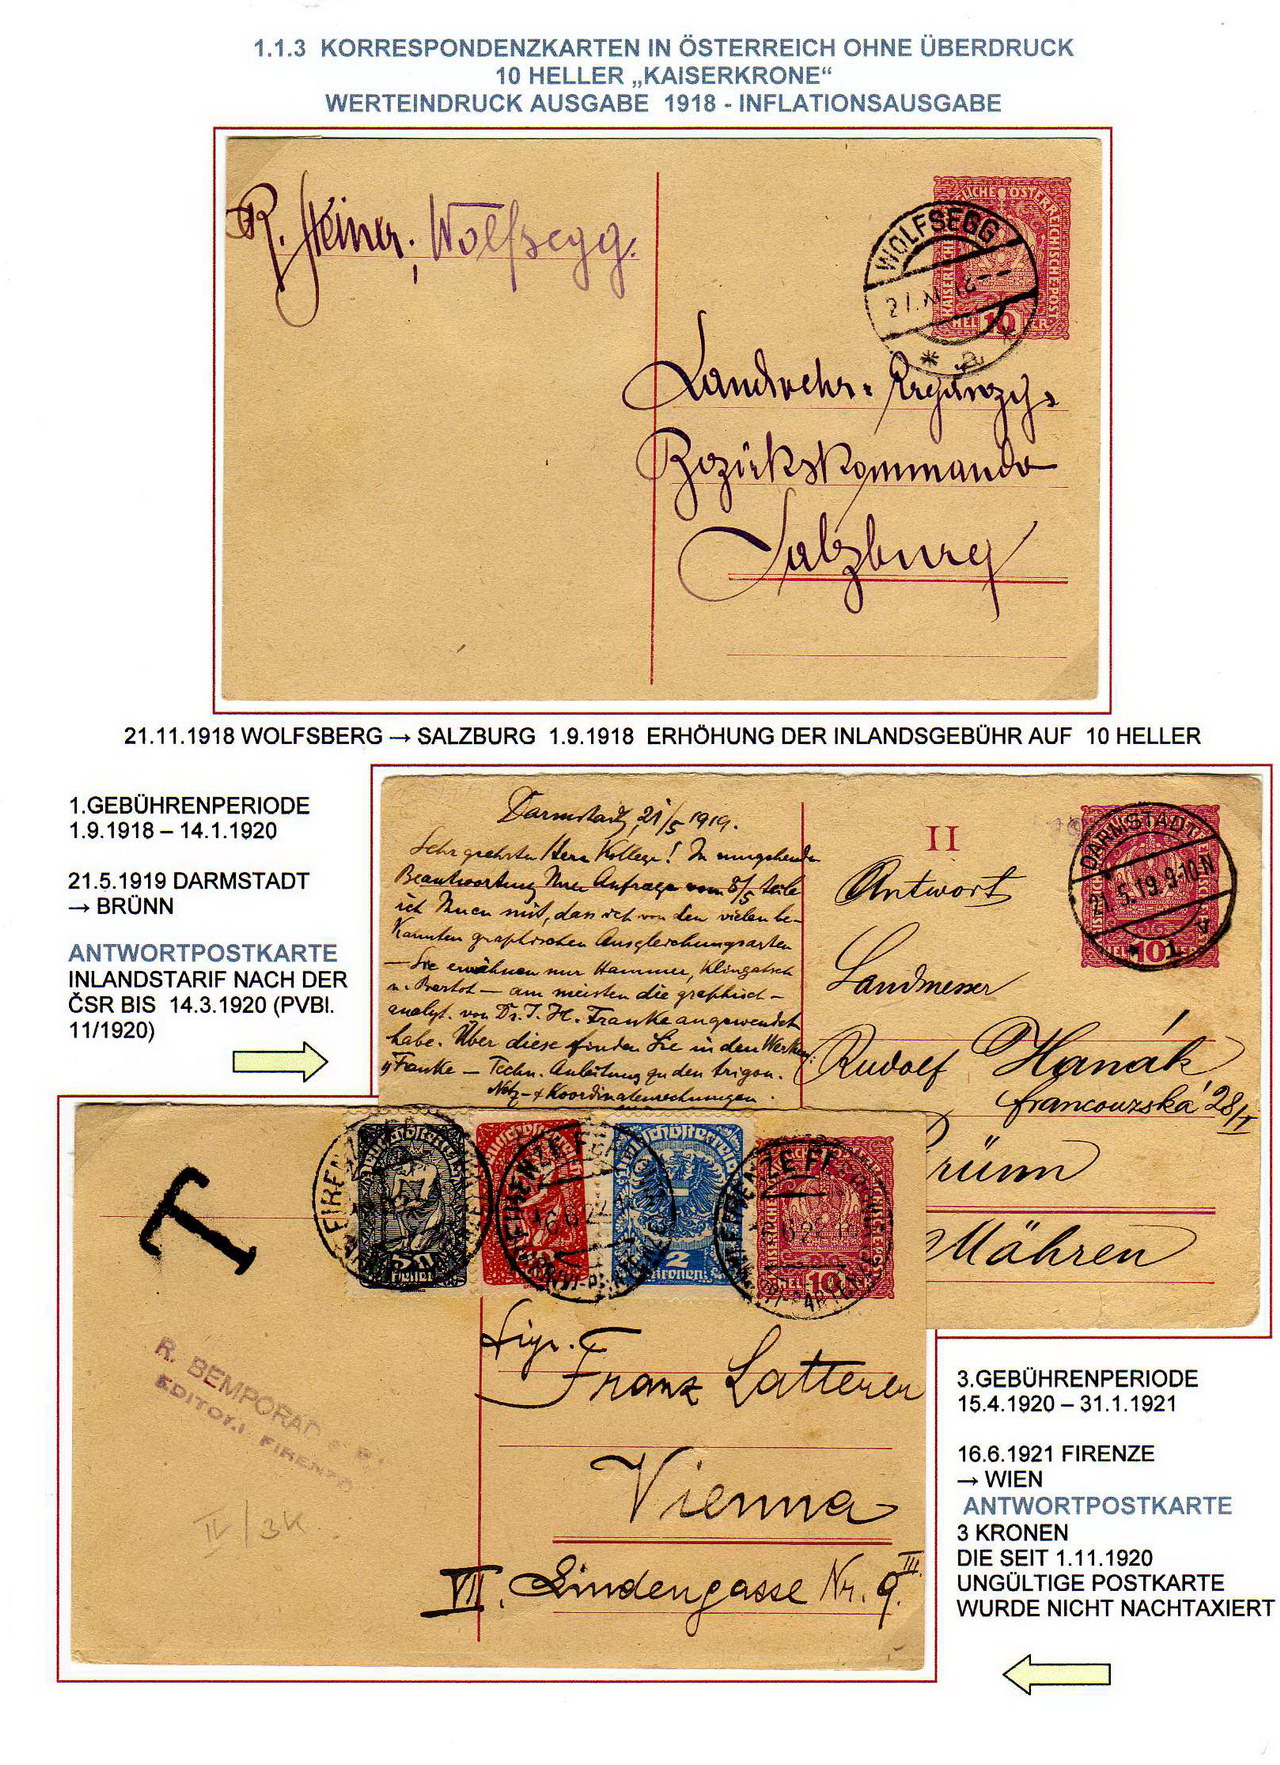 1.1.3 KORRESPONDENZKARTEN IN ÖSTERREICH OHNE ÜBERDRUCK
10 HELLER „KAISERKRONE“
WERTEINDRUCK AUSGABE 1918 - INFLATIONSAUSGABE
R. Steiner, Wolfsegg.
KAISERLICHE ÖSTERREICHISCHE POST
WOLFSEGG
HELLER 10
Landwehr-Ergänzgs
Bezirkskommando
Salzburg
21.11.1918 WOLFSBERG → SALZBURG 1.9.1918 ERHÖHUNG DER INLANDSGEBÜHR AUF 10 HELLER
1.GEBÜHRENPERIODE
1.9.1918 – 14.1.1920
21.5.1919 DARMSTADT
→ BRÜNN
ANTWORTPOSTKARTE
INLANDSTARIF NACH DER
ČSR BIS 14.3.1920 (PVBl.
11/1920)
Darmstadt, 21/5 1919.
Sehr geehrter Herr Kollege! In umgehender
Beantwortung Ihrer Anfrage vom 8/5 teile
ich Ihnen mit, dass ich von den vielen be-
kannten graphischen Ausgleichungsarten
– Sie erwähnen nur Hammer, Klingatsch
u. Bertot – am meisten die graphisch-
analyt. von Dr. J. H. Franke angewendet
habe. Über diese finden Sie in den Werken:
„Franke – Techn. Anleitung zu den trigon.
Netz- & Koordinatenrechnungen.
II
DARMSTADT
21.5.19.9-10N
10
Antwort
Landmesser
Rudolf Hanák
francouzská 28/I
rünn
Mähren
T
FIRENZE FERROVIA
2
Kronen
10
R. BEMPORAD & F.
EDITORI FIRENZE
II / 3K
Sigr.
Franz Latterer
Vienna
VII. Lindengasse Nr. 9 III.
3.GEBÜHRENPERIODE
15.4.1920 – 31.1.1921
16.6.1921 FIRENZE
→ WIEN
ANTWORTPOSTKARTE
3 KRONEN
DIE SEIT 1.11.1920
UNGÜLTIGE POSTKARTE
WURDE NICHT NACHTAXIERT